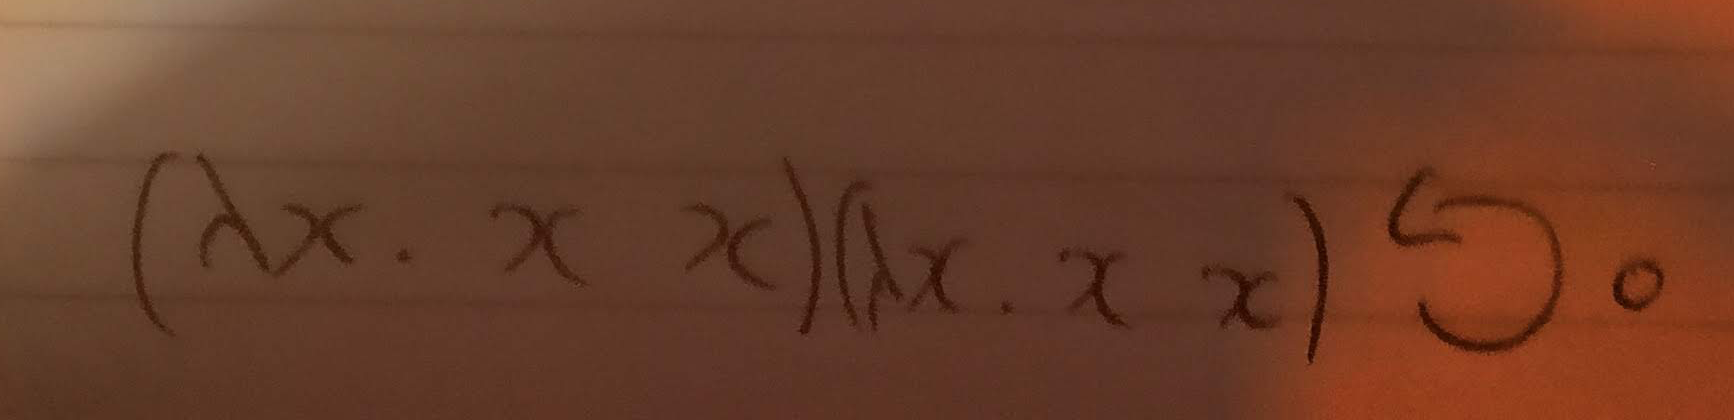 (λx. x x)(λx. x x) ↺。